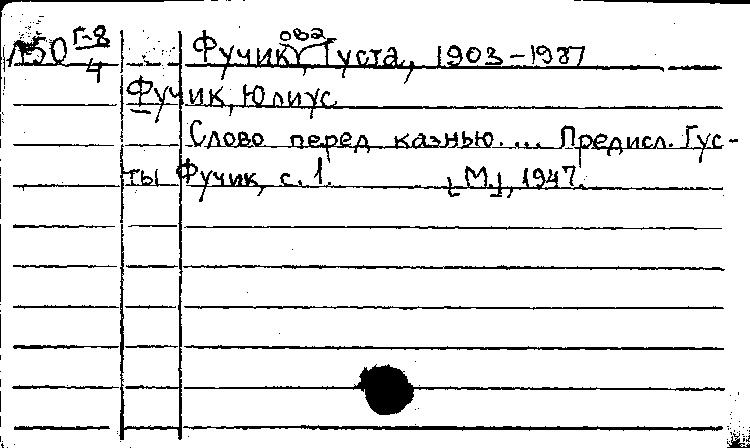 Л50 Г-8/4 Фучикова, Густа, 1903-1987
Фучик, Юлиус
Слово перед казнью. ... Предисл. Гус-
ты Фучик, с. 1. [М.], 1947.